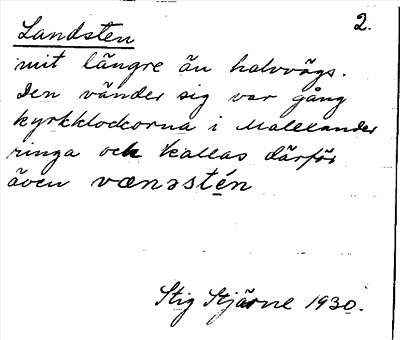 2.
Landsten
mit längre än halvvägs.
Den vänder sig var gång
kyrkklockorna i Malexander
ringa och kallas därför
även vænəstén
Stig Stjärne 1930.